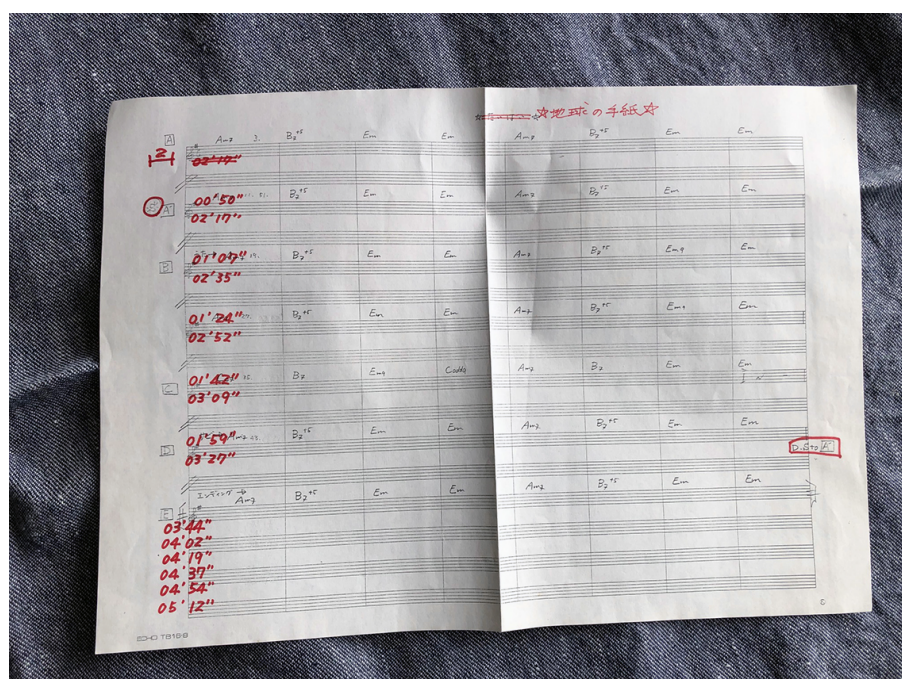 ☆地球の手紙☆
A Am7 3. B7+5 Em Em Am7 B7+5 Em Em
2 02'17"
00'50" B7+5 Em Em Am7 B7+5 Em Em
A' 02'17"
01'07" 19. B7+5 Em Em Am7 B7+5 Em9 Em
B 02'35"
01'24" 27. B7+5 Em Em Am7 B7+5 Em9 Em
02'52"
01'42" 35. B7 Em9 Cadd9 Am7 B7 Em Em
C 03'09"
01'59" Am7 43. B7+5 Em Em Am7 B7+5 Em Em
D 03'27" D.S to A'
エンディング→ Am7 B7+5 Em Em Am7 B7+5 Em Em
E
03'44"
04'02"
04'19"
04'37"
04'54"
05'12"
ECHO TB10-8